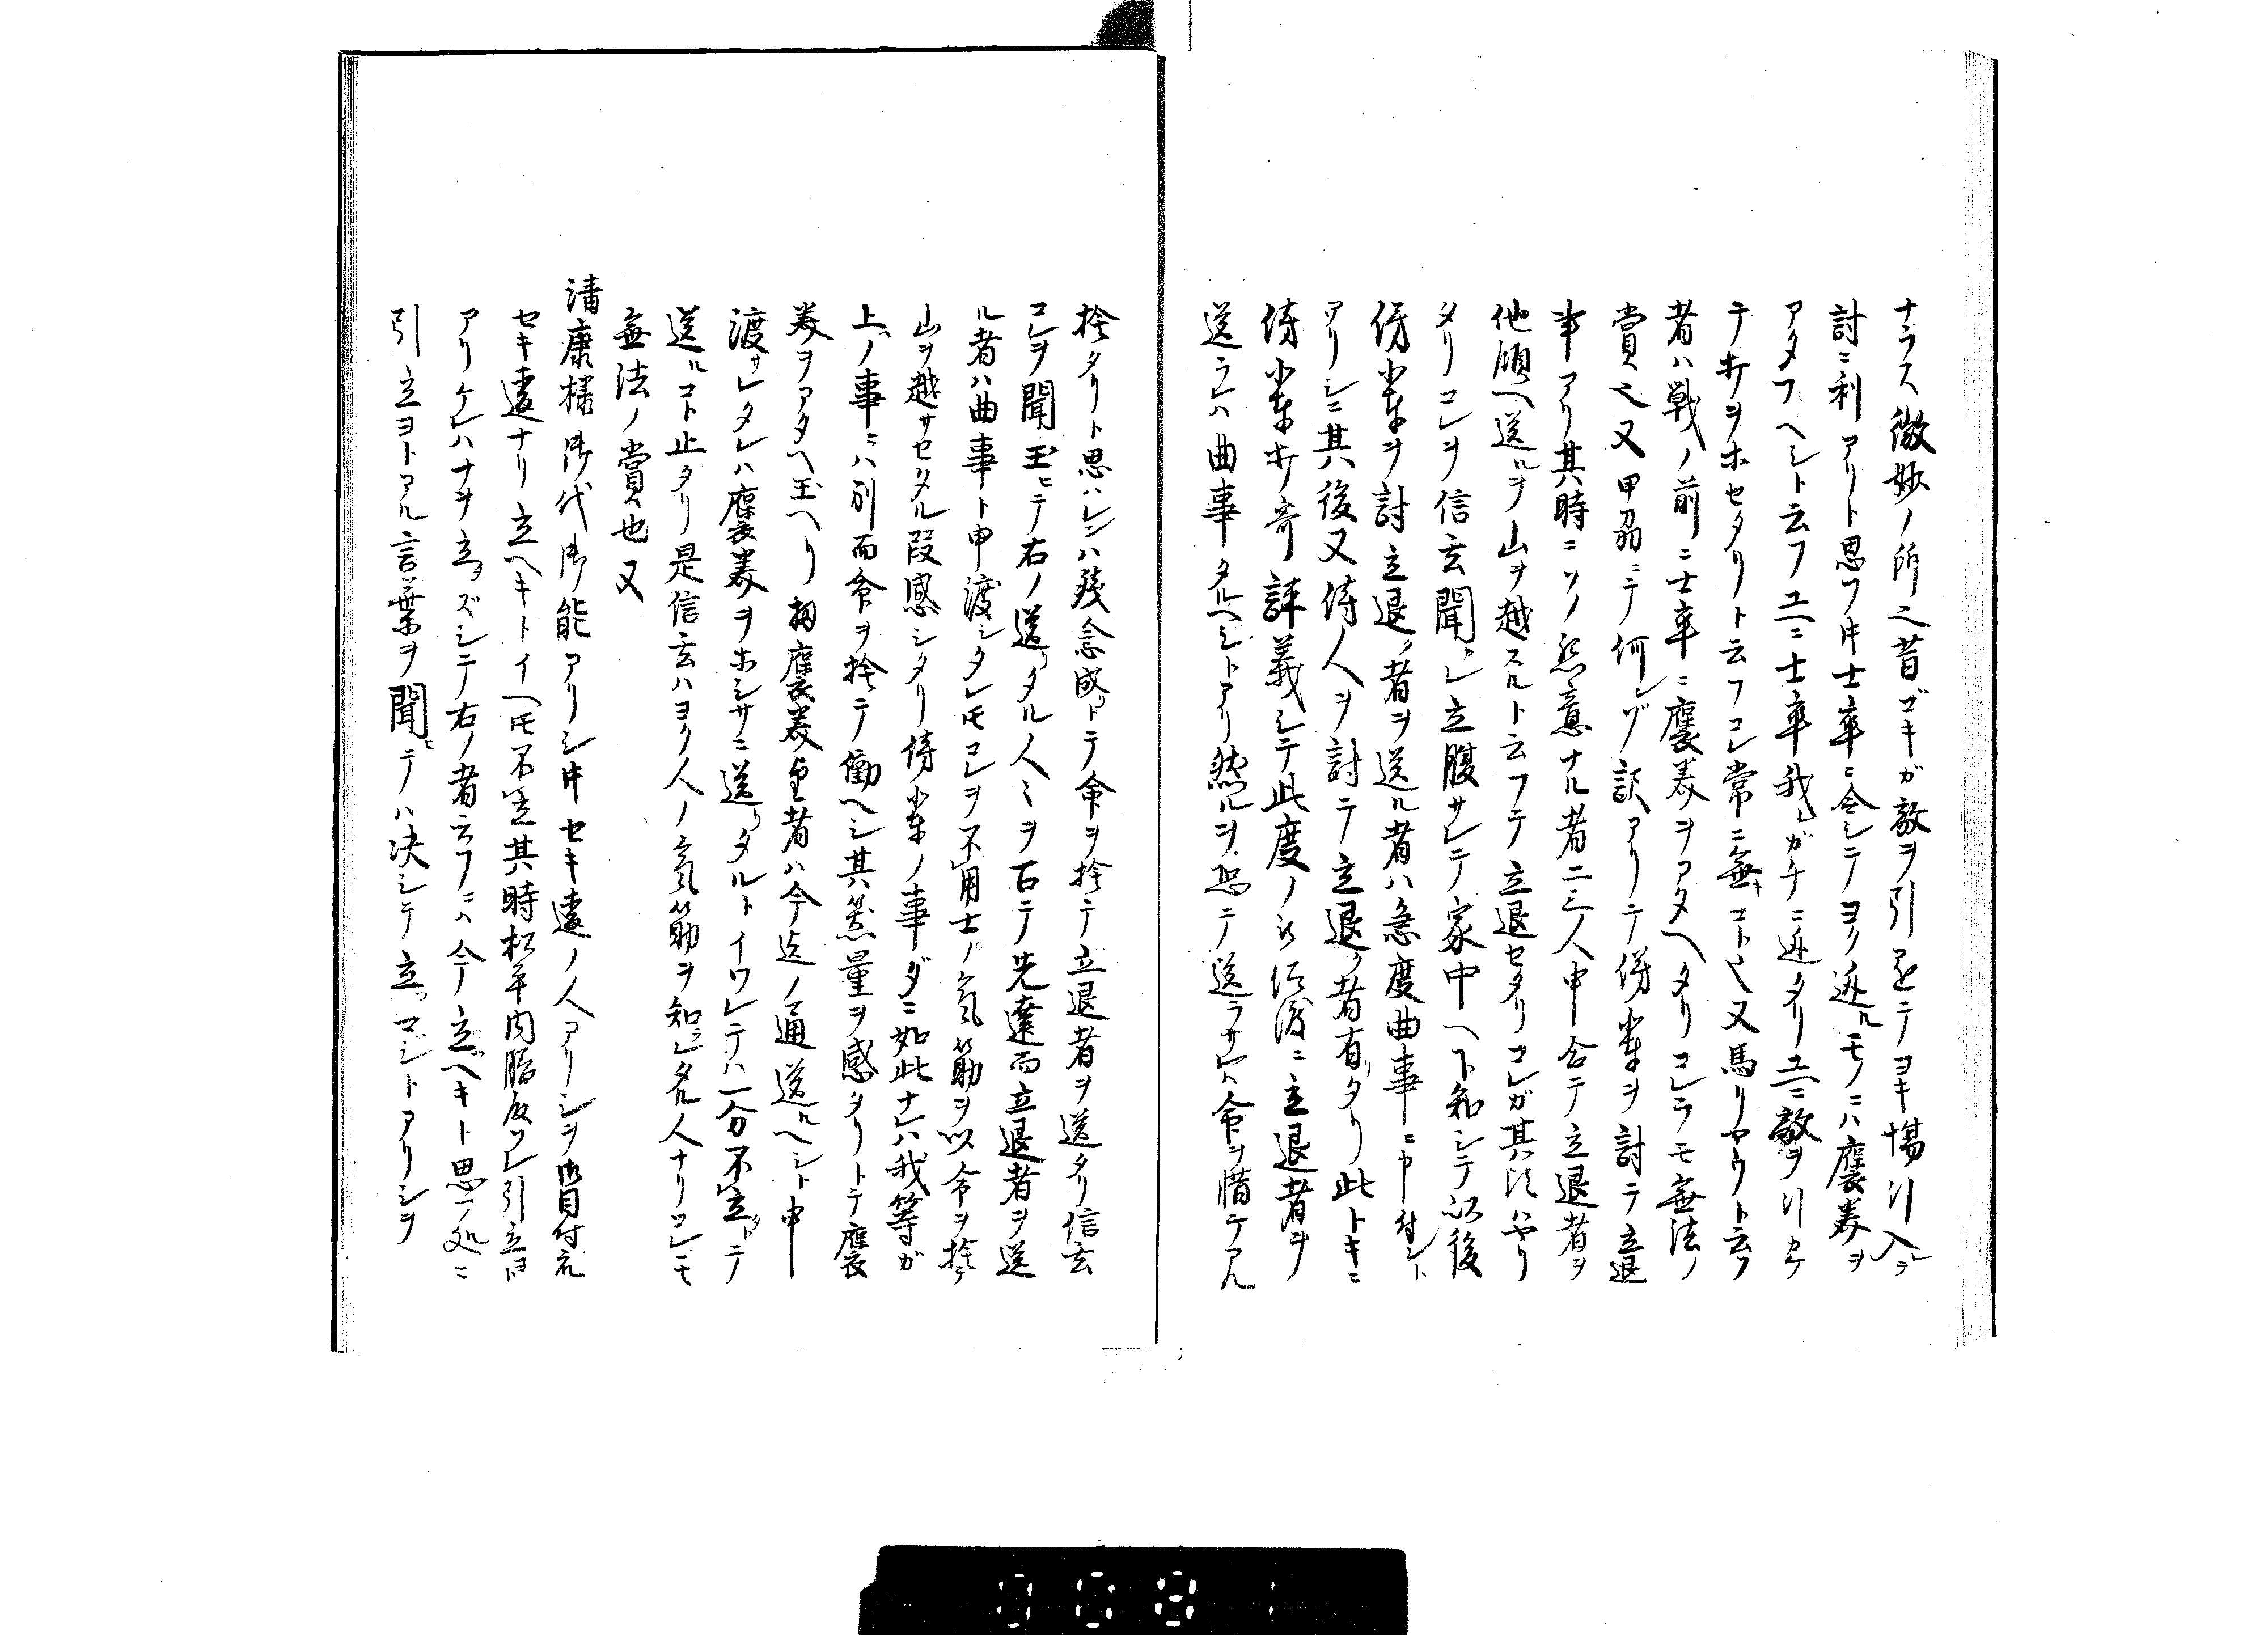 ナラス微妙ノ所也昔ゴキガ敵ヲ引ヲヒテヨキ場ヘ引入レテ
討ニ利アリト思フ時士卒ニ令シテヨク逃ルモノニハ褒美ヲ
アタフヘシト云フユヘニ士卒我レガチニ逃タリユヘニ敵ヲ引カケ
テ勝ヲホセタリト云フコレ常ニ無キコト也又馬リヤウト云フ
者ハ戦ノ前ニ士卒ニ褒美ヲアタヘタリコレラモ無法ノ
賞也又甲州ニテ何レゾ訳アリテ傍輩ヲ討テ立退
事アリ其時ニソノ懇意ナル者二三人申合テ立退者ヲ
他領ヘ送ルヲ山ヲ越スルト云フテ立退セタリコレガ其頃ハヤリ
タリコレヲ信玄聞レ立腹サレテ家中ヘ下知シテ以後
傍輩ヲ討立退ク者ヲ送ル者ハ急度曲事ニ申付シト
アリシニ其後又侍人ヲ討テ立退ク者有リタリ此トキニ
傍輩共寄評義シテ此度ノ御法度ニ立退者ヲ
送ラレハ曲事タルヘシトアリ然ルヲ恐テ送ラサレハ命ヲ惜テアル
捨タリト思ハレンハ残念成トテ命ヲ捨テ立退者ヲ送タリ信玄
コレヲ聞玉ヒテ右ノ送リタル人ミヲ召テ先達而立退者ヲ送
ル者ハ曲事ト申渡シタレ𪜈コレヲ不用士ノ気筋ヲ以命ヲ捨テ
山ヲ越サセタル段感シタリ傍輩ノ事ダニ如此ナレハ我等ガ
上ノ事ニハ別而命ヲ捨テ働ヘシ其器量ヲ感タリトテ褒
美ヲアタヘ玉ヘリ扨褒美至者ハ今迄ノ通送ルヘシト申
渡サレタレハ褒美ヲホシサニ送リタルトイワレテハ一分不立トテ
送ルコト止タリ是信玄ハヨク人ノ気筋ヲ知レシ名人ナリコレモ
無法ノ賞也又
清康様御代御能アリシ時セキ違ノ人アリシヲ御目付衆
セキ違ナリ立ヘキトイヘ𪜈不立其時松平内膳反ワレ引立ヨト
アリケレハナヲ立タズシテ右ノ者云フニハ今立ヘキト思フ処ニ
引立ヨトアル言葉ヲ聞ヒテハ決シテ立ツマジトアリシヲ